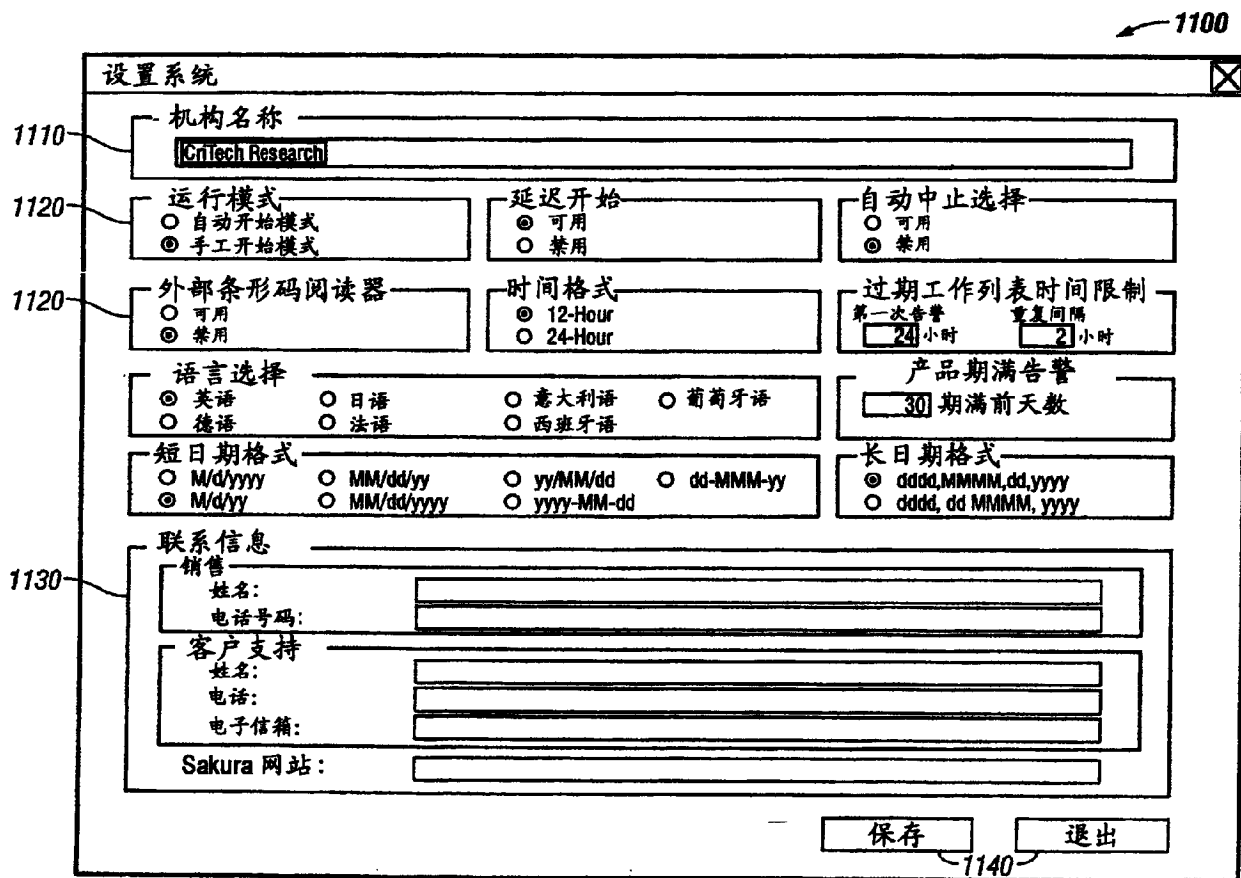 1100
设置系统
1110
机构名称
CriTech Research
1120
运行模式
自动开始模式
手工开始模式
延迟开始
可用
禁用
自动中止选择
可用
禁用
1120
外部条形码阅读器
可用
禁用
时间格式
12-Hour
24-Hour
过期工作列表时间限制
第一次告警 重复间隔
24 小时 2 小时
语言选择
英语 日语 意大利语 葡萄牙语
德语 法语 西班牙语
产品期满告警
30 期满前天数
短日期格式
M/d/yyyy MM/dd/yy yy/MM/dd dd-MMM-yy
M/d/yy MM/dd/yyyy yyyy-MM-dd
长日期格式
dddd,MMMM,dd,yyyy
dddd, dd MMMM, yyyy
1130
联系信息
销售
姓名:
电话号码:
客户支持
姓名:
电话:
电子信箱:
Sakura 网站:
保存 退出
1140